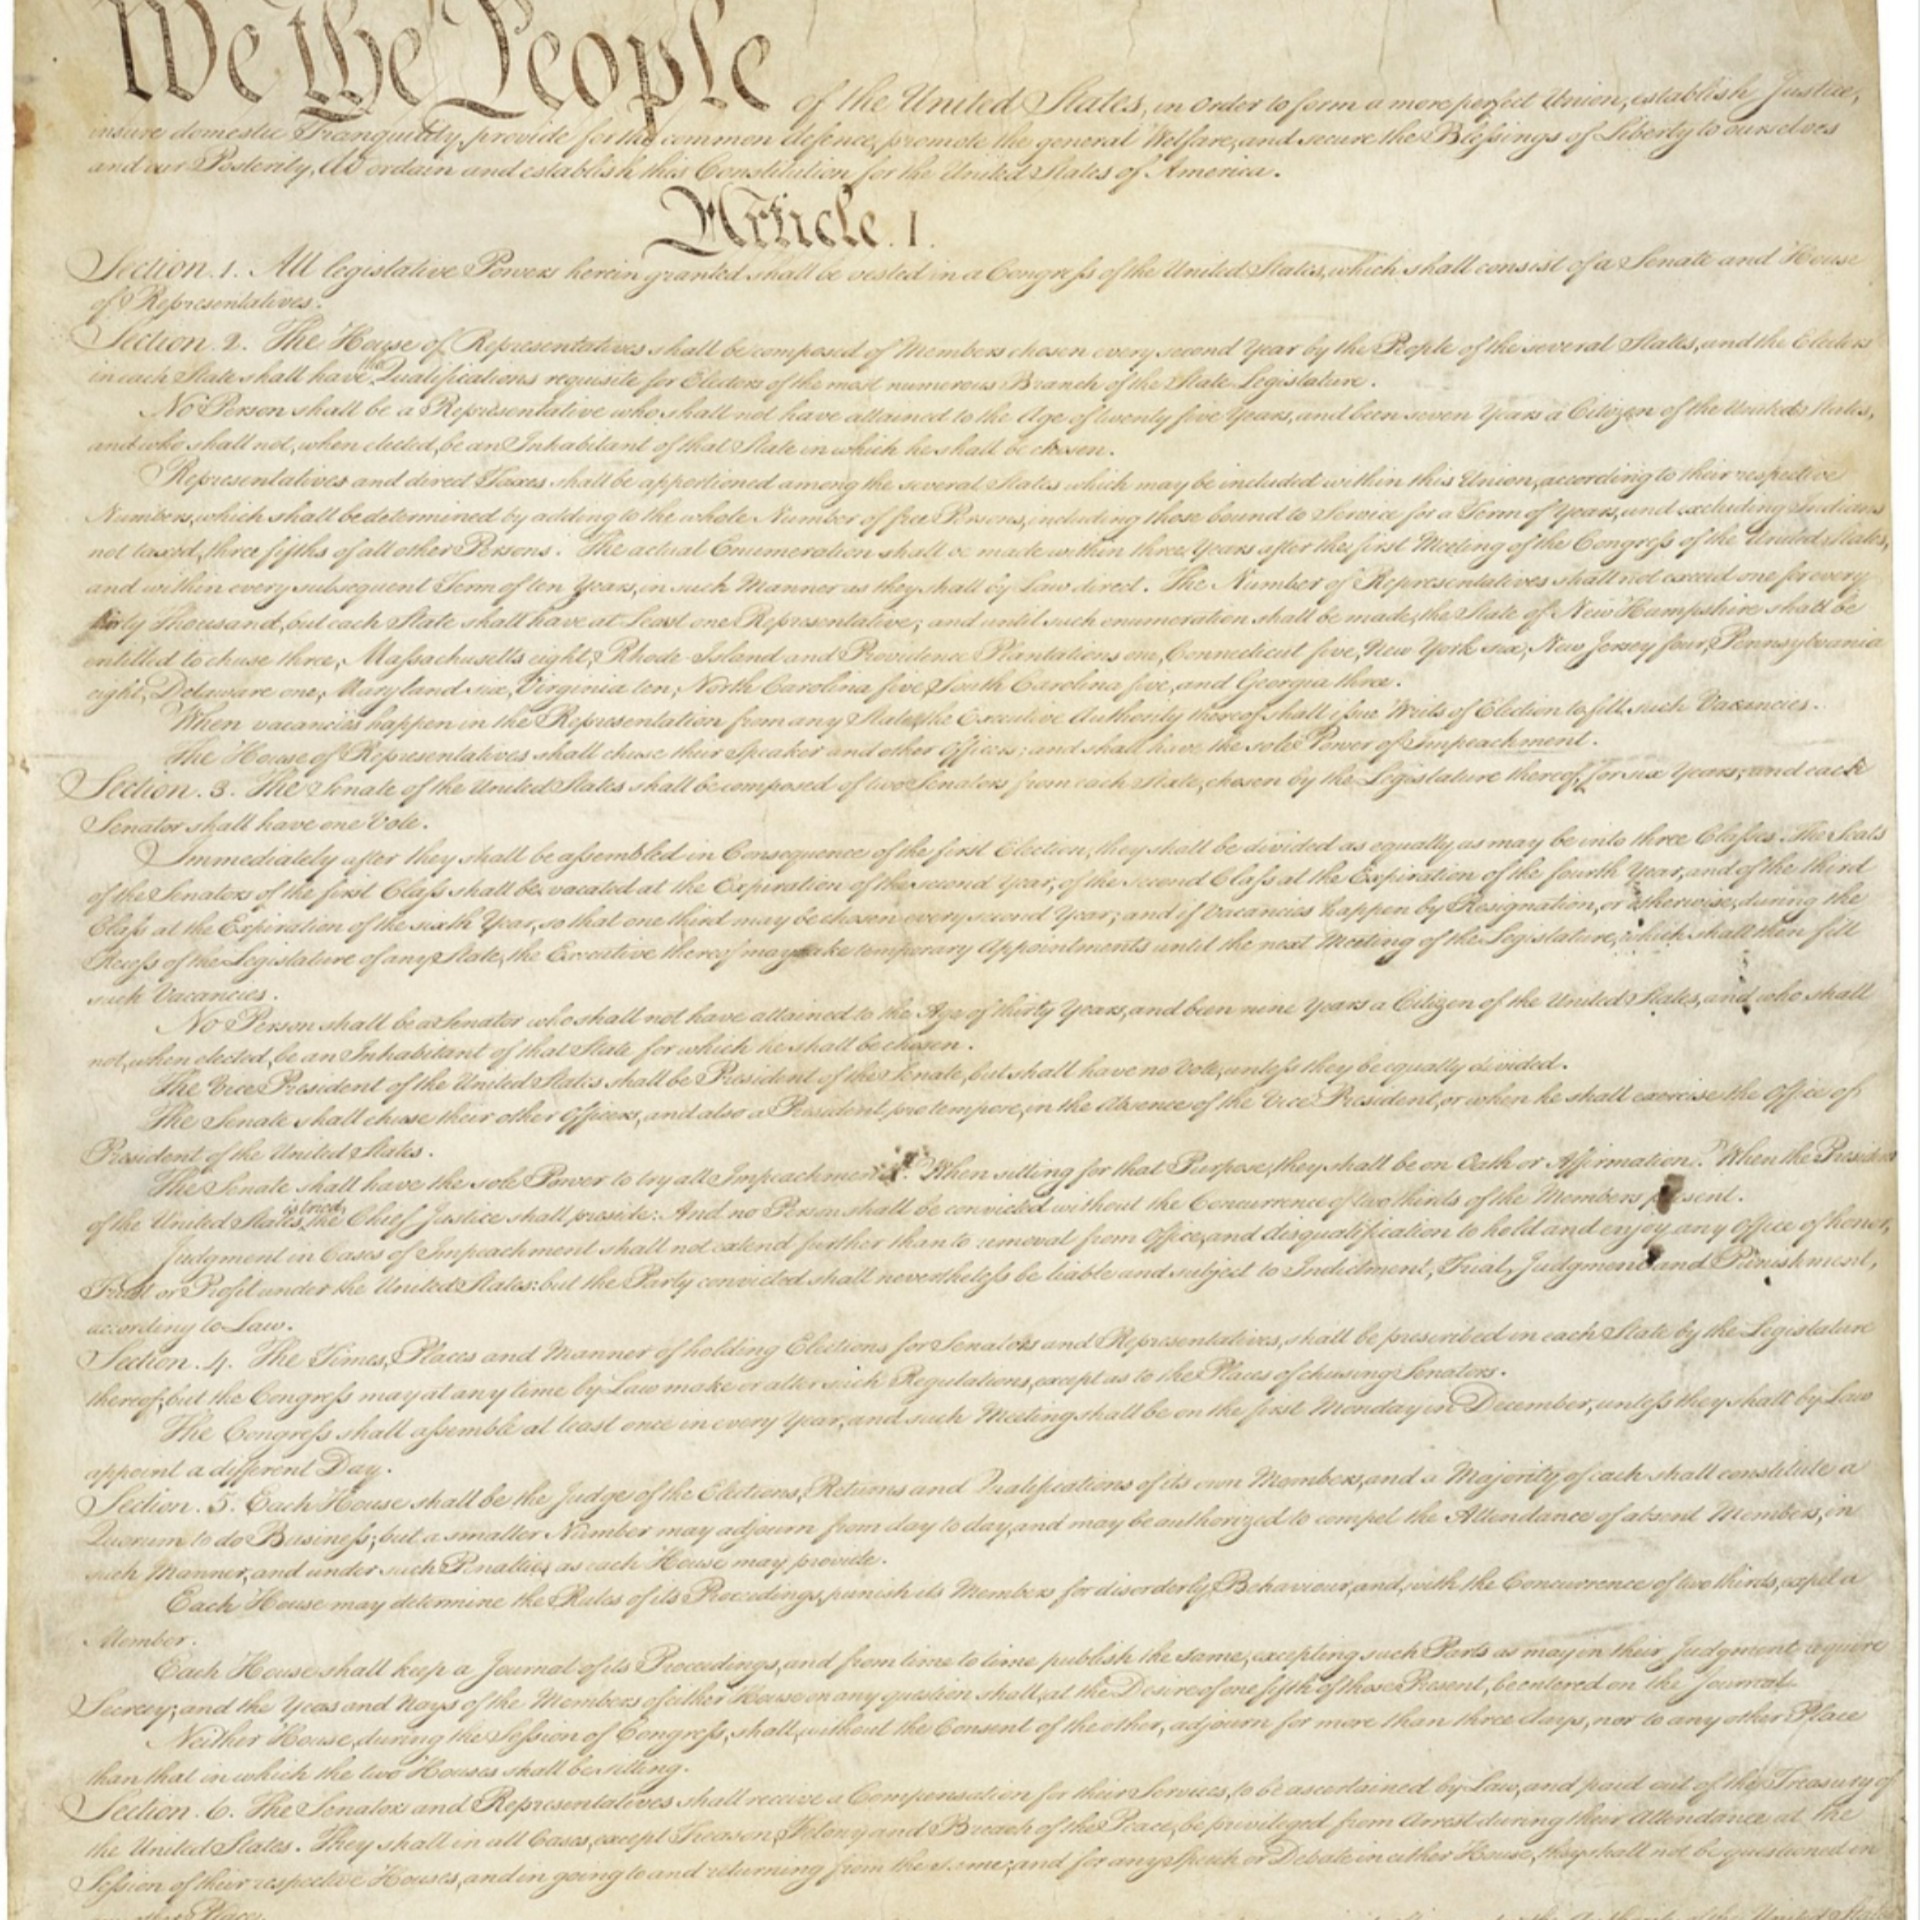 We the People of the United States, in Order to form a more perfect Union, establish Justice,
insure domestic Tranquility, provide for the common defence, promote the general Welfare, and secure the Blessings of Liberty to ourselves
and our Posterity, do ordain and establish this Constitution for the United States of America.
Article. I.
Section. 1. All legislative Powers herein granted shall be vested in a Congress of the United States, which shall consist of a Senate and House
of Representatives.
Section. 2. The House of Representatives shall be composed of Members chosen every second Year by the People of the several States, and the Electors
in each State shall have the Qualifications requisite for Electors of the most numerous Branch of the State Legislature.
No Person shall be a Representative who shall not have attained to the Age of twenty five Years, and been seven Years a Citizen of the United States,
and who shall not, when elected, be an Inhabitant of that State in which he shall be chosen.
Representatives and direct Taxes shall be apportioned among the several States which may be included within this Union, according to their respective
Numbers, which shall be determined by adding to the whole Number of free Persons, including those bound to Service for a Term of Years, and excluding Indians
not taxed, three fifths of all other Persons. The actual Enumeration shall be made within three Years after the first Meeting of the Congress of the United States,
and within every subsequent Term of ten Years, in such Manner as they shall by Law direct. The Number of Representatives shall not exceed one for every
thirty Thousand, but each State shall have at Least one Representative; and until such enumeration shall be made, the State of New Hampshire shall be
entitled to chuse three, Massachusetts eight, Rhode-Island and Providence Plantations one, Connecticut five, New-York six, New Jersey four, Pennsylvania
eight, Delaware one, Maryland six, Virginia ten, North Carolina five, South Carolina five, and Georgia three.
When vacancies happen in the Representation from any State, the Executive Authority thereof shall issue Writs of Election to fill such Vacancies.
The House of Representatives shall chuse their Speaker and other Officers; and shall have the sole Power of Impeachment.
Section. 3. The Senate of the United States shall be composed of two Senators from each State, chosen by the Legislature thereof, for six Years; and each
Senator shall have one Vote.
Immediately after they shall be assembled in Consequence of the first Election, they shall be divided as equally as may be into three Classes. The Seats
of the Senators of the first Class shall be vacated at the Expiration of the second Year, of the second Class at the Expiration of the fourth Year, and of the third
Class at the Expiration of the sixth Year, so that one third may be chosen every second Year; and if Vacancies happen by Resignation, or otherwise, during the
Recess of the Legislature of any State, the Executive thereof may make temporary Appointments until the next Meeting of the Legislature, which shall then fill
such Vacancies.
No Person shall be a Senator who shall not have attained to the Age of thirty Years, and been nine Years a Citizen of the United States, and who shall
not, when elected, be an Inhabitant of that State for which he shall be chosen.
The Vice President of the United States shall be President of the Senate, but shall have no Vote, unless they be equally divided.
The Senate shall chuse their other Officers, and also a President pro tempore, in the Absence of the Vice President, or when he shall exercise the Office of
President of the United States.
The Senate shall have the sole Power to try all Impeachments. When sitting for that Purpose, they shall be on Oath or Affirmation. When the President
of the United States is tried, the Chief Justice shall preside: And no Person shall be convicted without the Concurrence of two thirds of the Members present.
Judgment in Cases of Impeachment shall not extend further than to removal from Office, and disqualification to hold and enjoy any Office of honor,
Trust or Profit under the United States: but the Party convicted shall nevertheless be liable and subject to Indictment, Trial, Judgment and Punishment,
according to Law.
Section. 4. The Times, Places and Manner of holding Elections for Senators and Representatives, shall be prescribed in each State by the Legislature
thereof; but the Congress may at any time by Law make or alter such Regulations, except as to the Places of chusing Senators.
The Congress shall assemble at least once in every Year, and such Meeting shall be on the first Monday in December, unless they shall by Law
appoint a different Day.
Section. 5. Each House shall be the Judge of the Elections, Returns and Qualifications of its own Members, and a Majority of each shall constitute a
Quorum to do Business; but a smaller Number may adjourn from day to day, and may be authorized to compel the Attendance of absent Members, in
such Manner, and under such Penalties as each House may provide.
Each House may determine the Rules of its Proceedings, punish its Members for disorderly Behaviour, and, with the Concurrence of two thirds, expel a
Member.
Each House shall keep a Journal of its Proceedings, and from time to time publish the same, excepting such Parts as may in their Judgment require
Secrecy; and the Yeas and Nays of the Members of either House on any question shall, at the Desire of one fifth of those Present, be entered on the Journal.
Neither House, during the Session of Congress, shall, without the Consent of the other, adjourn for more than three days, nor to any other Place
than that in which the two Houses shall be sitting.
Section. 6. The Senators and Representatives shall receive a Compensation for their Services, to be ascertained by Law, and paid out of the Treasury of
the United States. They shall in all Cases, except Treason, Felony and Breach of the Peace, be privileged from Arrest during their Attendance at the
Session of their respective Houses, and in going to and returning from the same; and for any Speech or Debate in either House, they shall not be questioned in
Place.